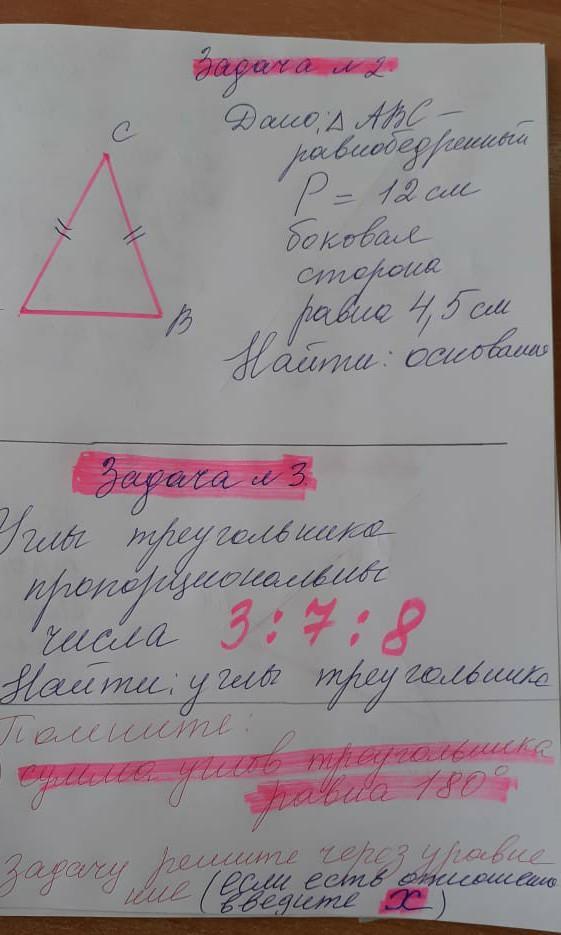 Задача №2
C
B
Дано: △ ABC –
равнобедренный
P = 12 см
боковая
сторона
равна 4,5 см
Найти: основание
Задача №3
Углы треугольника
пропорциональны
числа 3:7:8
Найти: углы треугольника
Помните:
сумма углов треугольника
равна 180°
Задачу решите через уравне
ние (если есть отношение
введите x)